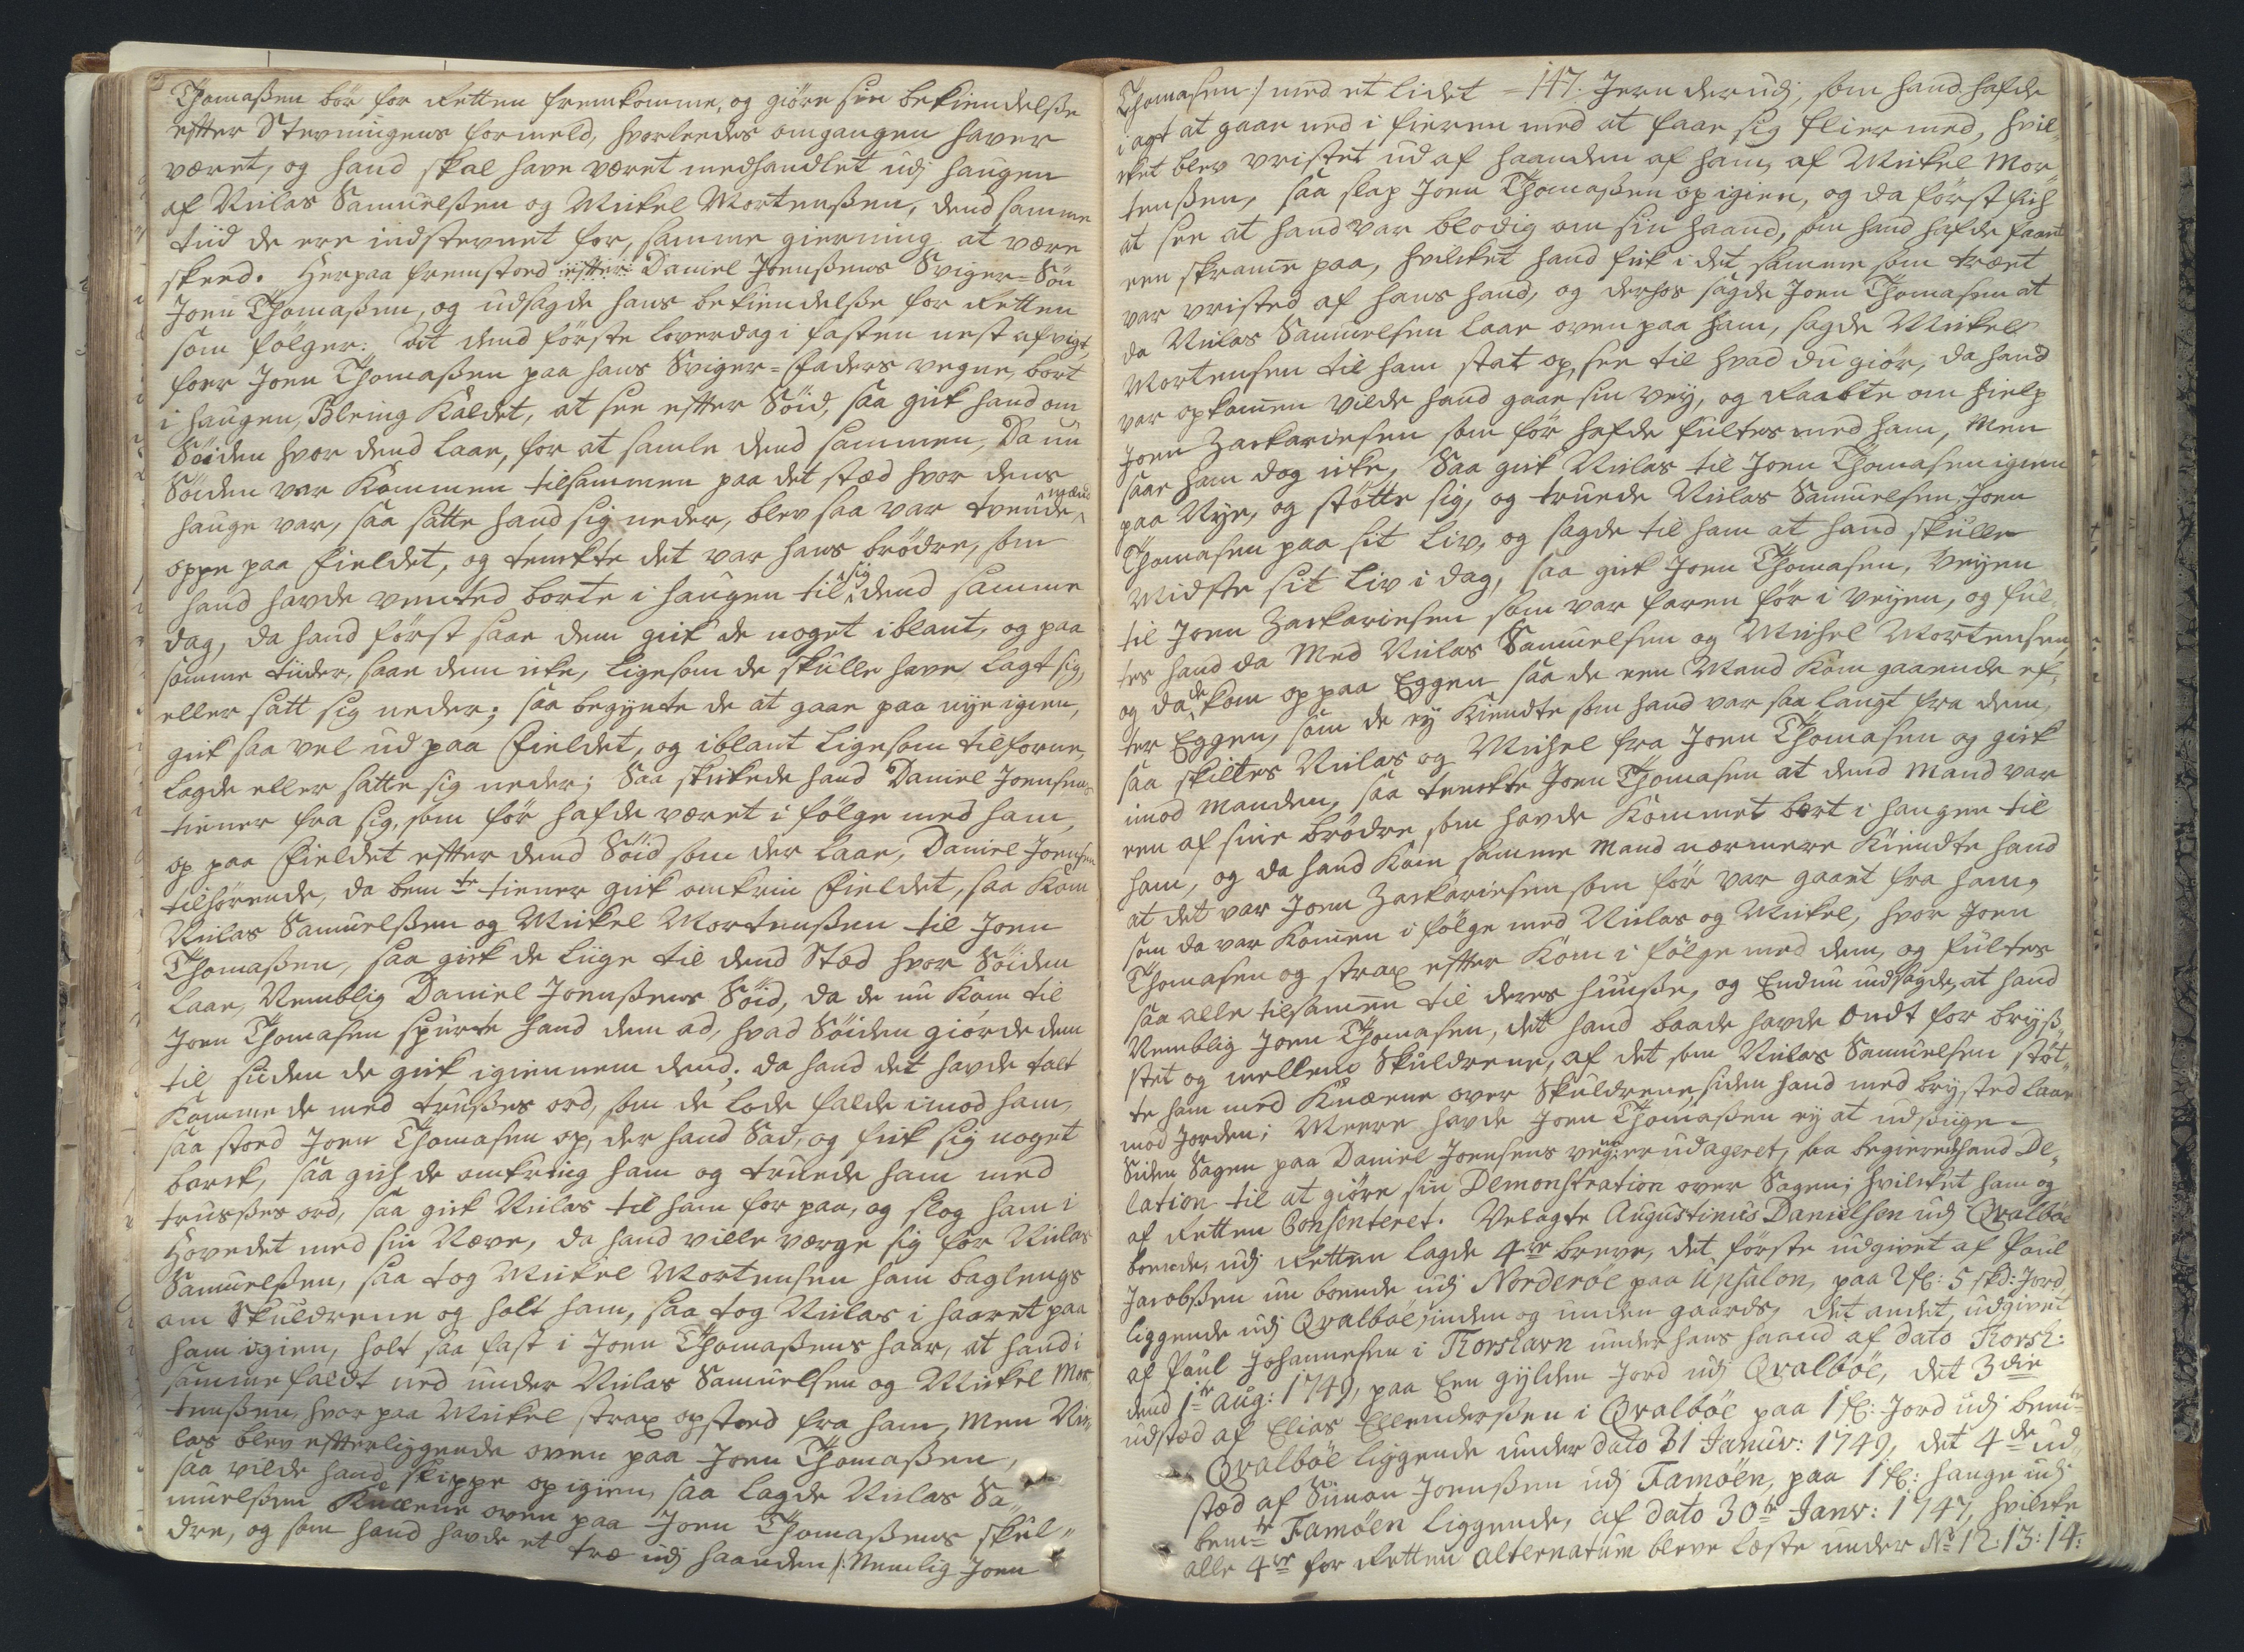 Thomaßen bör for Retten fremkomme, og giöre sin bekiendelße
efter Stevningens formeld, hvorleedes omgangen haver
været, og hand skal have været medhandlet udj haugen
af Niclas Samuelßen og Mickel Mortenßen, dend samme
tiid de ere indstevnet for, samme gierning at være
skeed. Herpaa fremstoed efter Daniel Joenßens Sviger-Sön
Joen Thomaßen, og udsagde hans bekiendelße for Retten
som fölger: At dend förste löverdag i fasten nest afvigt
foer Joen Thomaßen paa hans Sviger-Faders vegne, bort
i haugen, Bleing Kaldet, at see efter Söid, saa gick hand om
Söiden hvor dend laae, for at samle dend sammen, Da nu
Söiden var Kommen tilsammen paa det stæd hvor dens
hauge var, saa satte hand sig neder, blev saa var tvende mænd
oppe paa Fieldet, og tenckte det var hans brödre, som
hand havde vented borte i haugen til sig dend samme
dag, da hand först saae dem gick de noget iblant, og paa
somme tiider, saae dem icke, ligesom de skulle have lagt sig,
eller satt sig neder; saa begynte de at gaae paa nye igien,
gick saa vel ud paa Fieldet, og iblant ligesom tilforne,
lagde eller satte sig neder; Saa skickede hand Daniel Joensens
tiener fra sig, som för hafde været i fölge med ham,
op paa Fieldet efter dend Söid som der laae, Daniel Joensen
tilhörende, da bemte tiener gick omkrin Fieldet, saa Kom
Niclas Samuelßen og Mickel Mortenßen til Joen
Thomaßen, saa gick de liige til dend Stæd hvor Söiden
laae, Nemblig Daniel Joenßens Söid, da de nu Kom til
Joen Thomasen spurte hand dem ad, hvad Söiden giorde dem
til siiden de gick igiennem dend; da hand det havde talt
Komme de med trußes ord, som de lode falde imod ham,
saa stoed Joen Thomasen op, der hand Sad, og fick sig noget
borck, saa gich de omkring ham og truede ham med
trusßes ord, saa gick Niclas til ham for paa, og slog ham i
Hovedet med sin Næve, da hand ville værge sig for Niclas
Samuelßen, saa tog Mickel Mortensen ham baglengs
om Skuldrene og holt ham, saa tog Niclas i haaret paa
ham igien, holt saa fast i Joen Thomaßens haar, at hand i
samme faldt ned under Niclas Samuelsen og Mickel Mor
tenßen, hvor paa Mickel strax opstoed fra ham, Men Nic
las blev efterliggende oven paa Joen Thomaßen,
saa vilde hand skippe op igien, saa lagde Niclas Sa-
muelßen Knæene oven paa Joen Thomaßens skul-
dre, og som hand havde et træ udj haanden /: Nemlig Joen
Thomasen :/ med et lidet = 147. Jern derudj, som hand hafde
i agt at gaae ned i fieren med at faae sig flier med, hvil-
cket blev vristet ud af haanden af ham, af Mickel Mor-
tenßen, saa slap Joen Thomaßen op igien, og da först fich
at see at hand var blodig om sin haand, som hand hafde faaet
een skramme paa, hvilcket hand fick i det samme som træet
var vristed af hans hand, og derhos sagde Joen Thomasen at
da Niclas Samuelsen laae oven paa ham, sagde Mickel
Mortensen til ham stat op, see til hvad du giör, da hand
var opkommen vilde hand gaae sin vey, og Raabte om hielp
Joen Zackariesen som för hafde fultes med ham, Men
saae ham dog icke, Saa gick Niclas til Joen Thomasen igien
paa Nye, og stötte sig, og truede Niclas Samuelsen, Joen
Thomasen paa sit Liv, og sagde til ham at hand skulle
Midste sit Liv i dag, saa gick Joen Thomasen, Veyen
til Joen Zackariesen som var faren för i Veyen, og ful-
tes hand da Med Niclas Samuelsen og Michel Mortensen,
og da de kom op paa Eggen saa de een Mand Kom gaaende ef-
ter Eggen, som de ey Kiendte som hand var saa langt fra dem,
saa skiltes Niclas og Michel fra Joen Thomasen og gick
imod Manden, saa tenckte Joen Thomasen at dend Mand var
een af sine brödre, som havde Kommet bort i haugen til
ham, og da hand Kom samme Mand nærmere Kiendte hand
at det var Joen Zackariesen som för var gaaet fra ham,
som da var Kommen i fölge med Niclas og Mickel, hvor Joen
Thomasen og strax efter Kom i fölge med dem, og fultes
saa alle tilsammen til deres huuse, og Endnu udsagde, at hand
Nemblig Joen Thomasen, det hand baade havde Ondt for brys-
stet og mellem Skuldrene, af det som Niclas Samuelsen stöt-
te ham med Knæene over Skuldrene, siden hand med brysted laae
mod Jorden; Meere havde Joen Thomaßen ey at udsiige.
Siden Sagen paa Daniel Joensens vegne er udageret, saa begierede hand De-
lation til at giöre sin Demonstration over Sagen; hvilcket ham og
af Retten Consenteret. Velagte Augustinus Danielsen udj Qvalböe
boende, udj Retten lagde 4re breve, det förste udgivet af Paul
Jacobßen nu boende udj Norderöe paa Upsalon, paa 2 fl: 5 skd: Jord
liggende udj Qvalböe, inden og uden gaards, det andet, udgivet
af Paul Johannesen i Thorshavn under hans haand af dato Thorsh:
dend 1te Aug: 1749, paa Een gylden Jord udj Qvalböe, det 3die
udstæd af Elias Ellenderßen i Qvalböe paa 1 fl: Jord udj bemte
Qvalböe liggende under dato 31 Januv: 1749, det 4de ud-
stæd af Simon Joenßen udj Famöen, paa 1 fl: hauge udj
bemte Famöen liggende, af dato 30te Janv: 1747, hvilcke
alle 4re for Retten alternatum bleve læste under No 12: 13: 14: